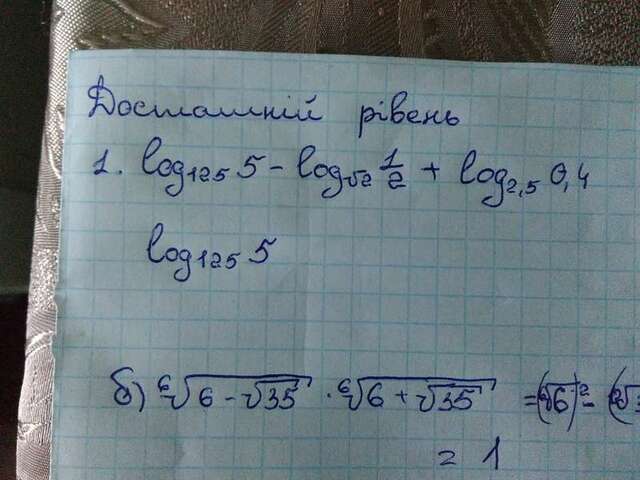 Достатній рівень
1. log₁₂₅ 5 - log_√2 1/2 + log₂,₅ 0,4
log₁₂₅ 5
б) ⁶√(6 - √35) · ⁶√(6 + √35) = (⁶√6)² - (
= 1